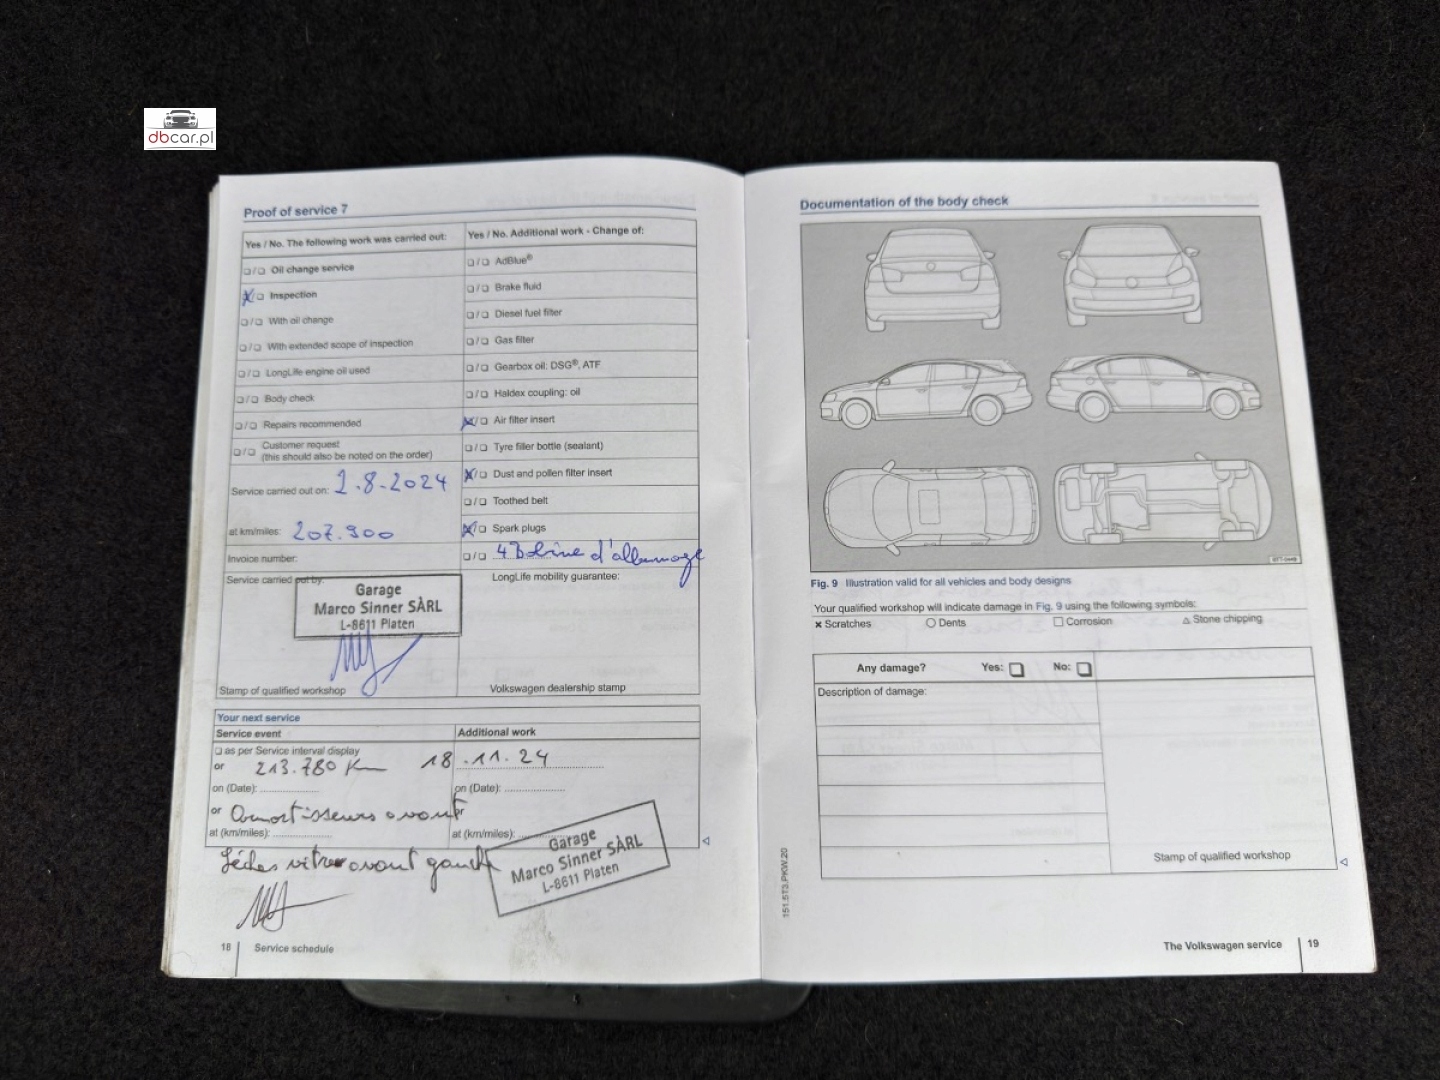 dbcar.pl
Proof of service 7
Yes / No. The following work was carried out:
☐/☐ Oil change service
☒/☐ Inspection
☐/☐ With oil change
☐/☐ With extended scope of inspection
☐/☐ LongLife engine oil used
☐/☐ Body check
☐/☐ Repairs recommended
☐/☐ Customer request
(this should also be noted on the order)
Service carried out on: 2.8.2024
at km/miles: 207.900
Invoice number:
Service carried out by:
Garage
Marco Sinner SÀRL
L-8611 Platen
Stamp of qualified workshop
Yes / No. Additional work - Change of:
☐/☐ AdBlue®
☐/☐ Brake fluid
☐/☐ Diesel fuel filter
☐/☐ Gas filter
☐/☐ Gearbox oil: DSG®, ATF
☐/☐ Haldex coupling: oil
☒/☐ Air filter insert
☐/☐ Tyre filler bottle (sealant)
☒/☐ Dust and pollen filter insert
☐/☐ Toothed belt
☒/☐ Spark plugs
☐/☐ 4 Bobine d'allumage
LongLife mobility guarantee:
Volkswagen dealership stamp
Your next service
Service event
Additional work
☐ as per Service interval display
or 213.780 Km 18.11.24
on (Date):
on (Date):
or Amortisseurs avant
or
at (km/miles):
at (km/miles):
vitre avant gauche
Garage
Marco Sinner SÀRL
L-8611 Platen
18 Service schedule
Documentation of the body check
Fig. 9 Illustration valid for all vehicles and body designs
Your qualified workshop will indicate damage in Fig. 9 using the following symbols:
× Scratches ○ Dents ☐ Corrosion △ Stone chipping
Any damage? Yes: ☐ No: ☐
Description of damage:
Stamp of qualified workshop
151.5T3.PKW.20
The Volkswagen service 19